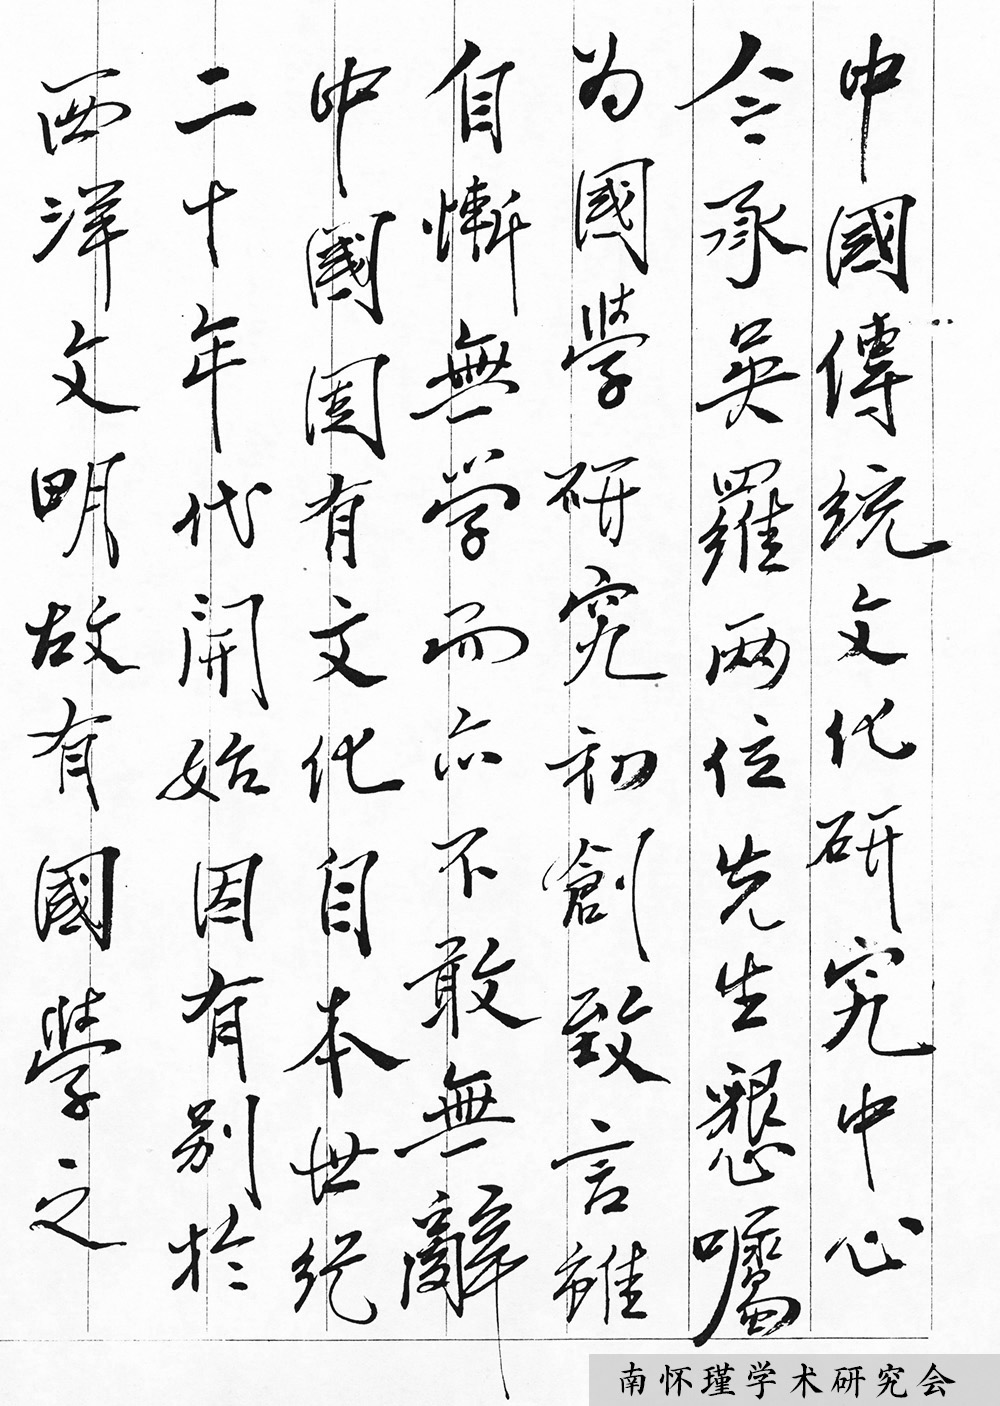 中國傳統文化研究中心
今承吳羅兩位先生懇囑
为國學研究初創致言雖
自慚無学而亦不敢無辭
中國固有文化自本世紀
二十年代開始因有别於
西洋文明故有國學之
南怀瑾学术研究会